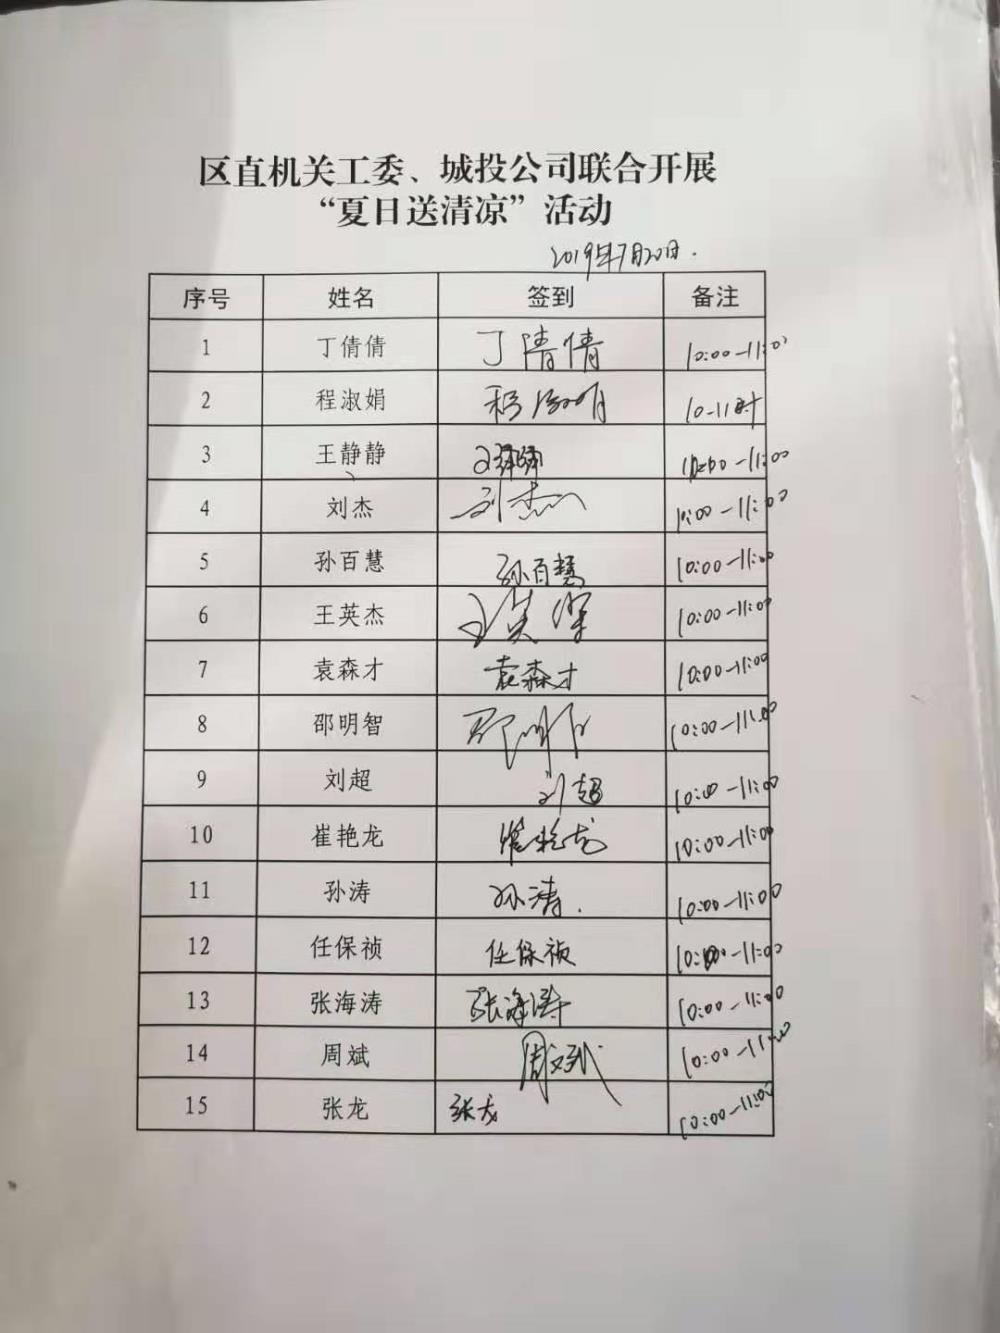 区直机关工委、城投公司联合开展
“夏日送清凉”活动
2019年7月20日.
序号 姓名 签到 备注
1 丁倩倩 丁倩倩 10:00-11:00
2 程淑娟 程淑娟 10-11时
3 王静静 王静静 10:00-11:00
4 刘杰 刘杰 10:00-11:00
5 孙百慧 孙百慧 10:00-11:00
6 王英杰 王英杰 10:00-11:00
7 袁森才 袁森才 10:00-11:00
8 邵明智 邵明智 10:00-11:00
9 刘超 刘超 10:00-11:00
10 崔艳龙 崔艳龙 10:00-11:00
11 孙涛 孙涛. 10:00-11:00
12 任保祯 任保祯 10:00-11:00
13 张海涛 张海涛 10:00-11:00
14 周斌 周斌 10:00-11:00
15 张龙 张龙 10:00-11:00